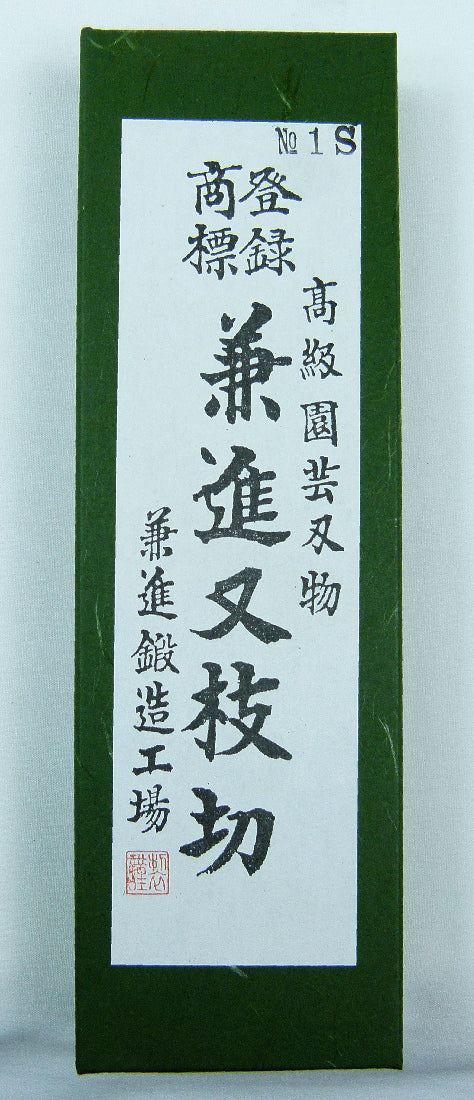 № 1 S
登録
商標
高級園芸刃物
兼進又枝切
兼進鍛造工場